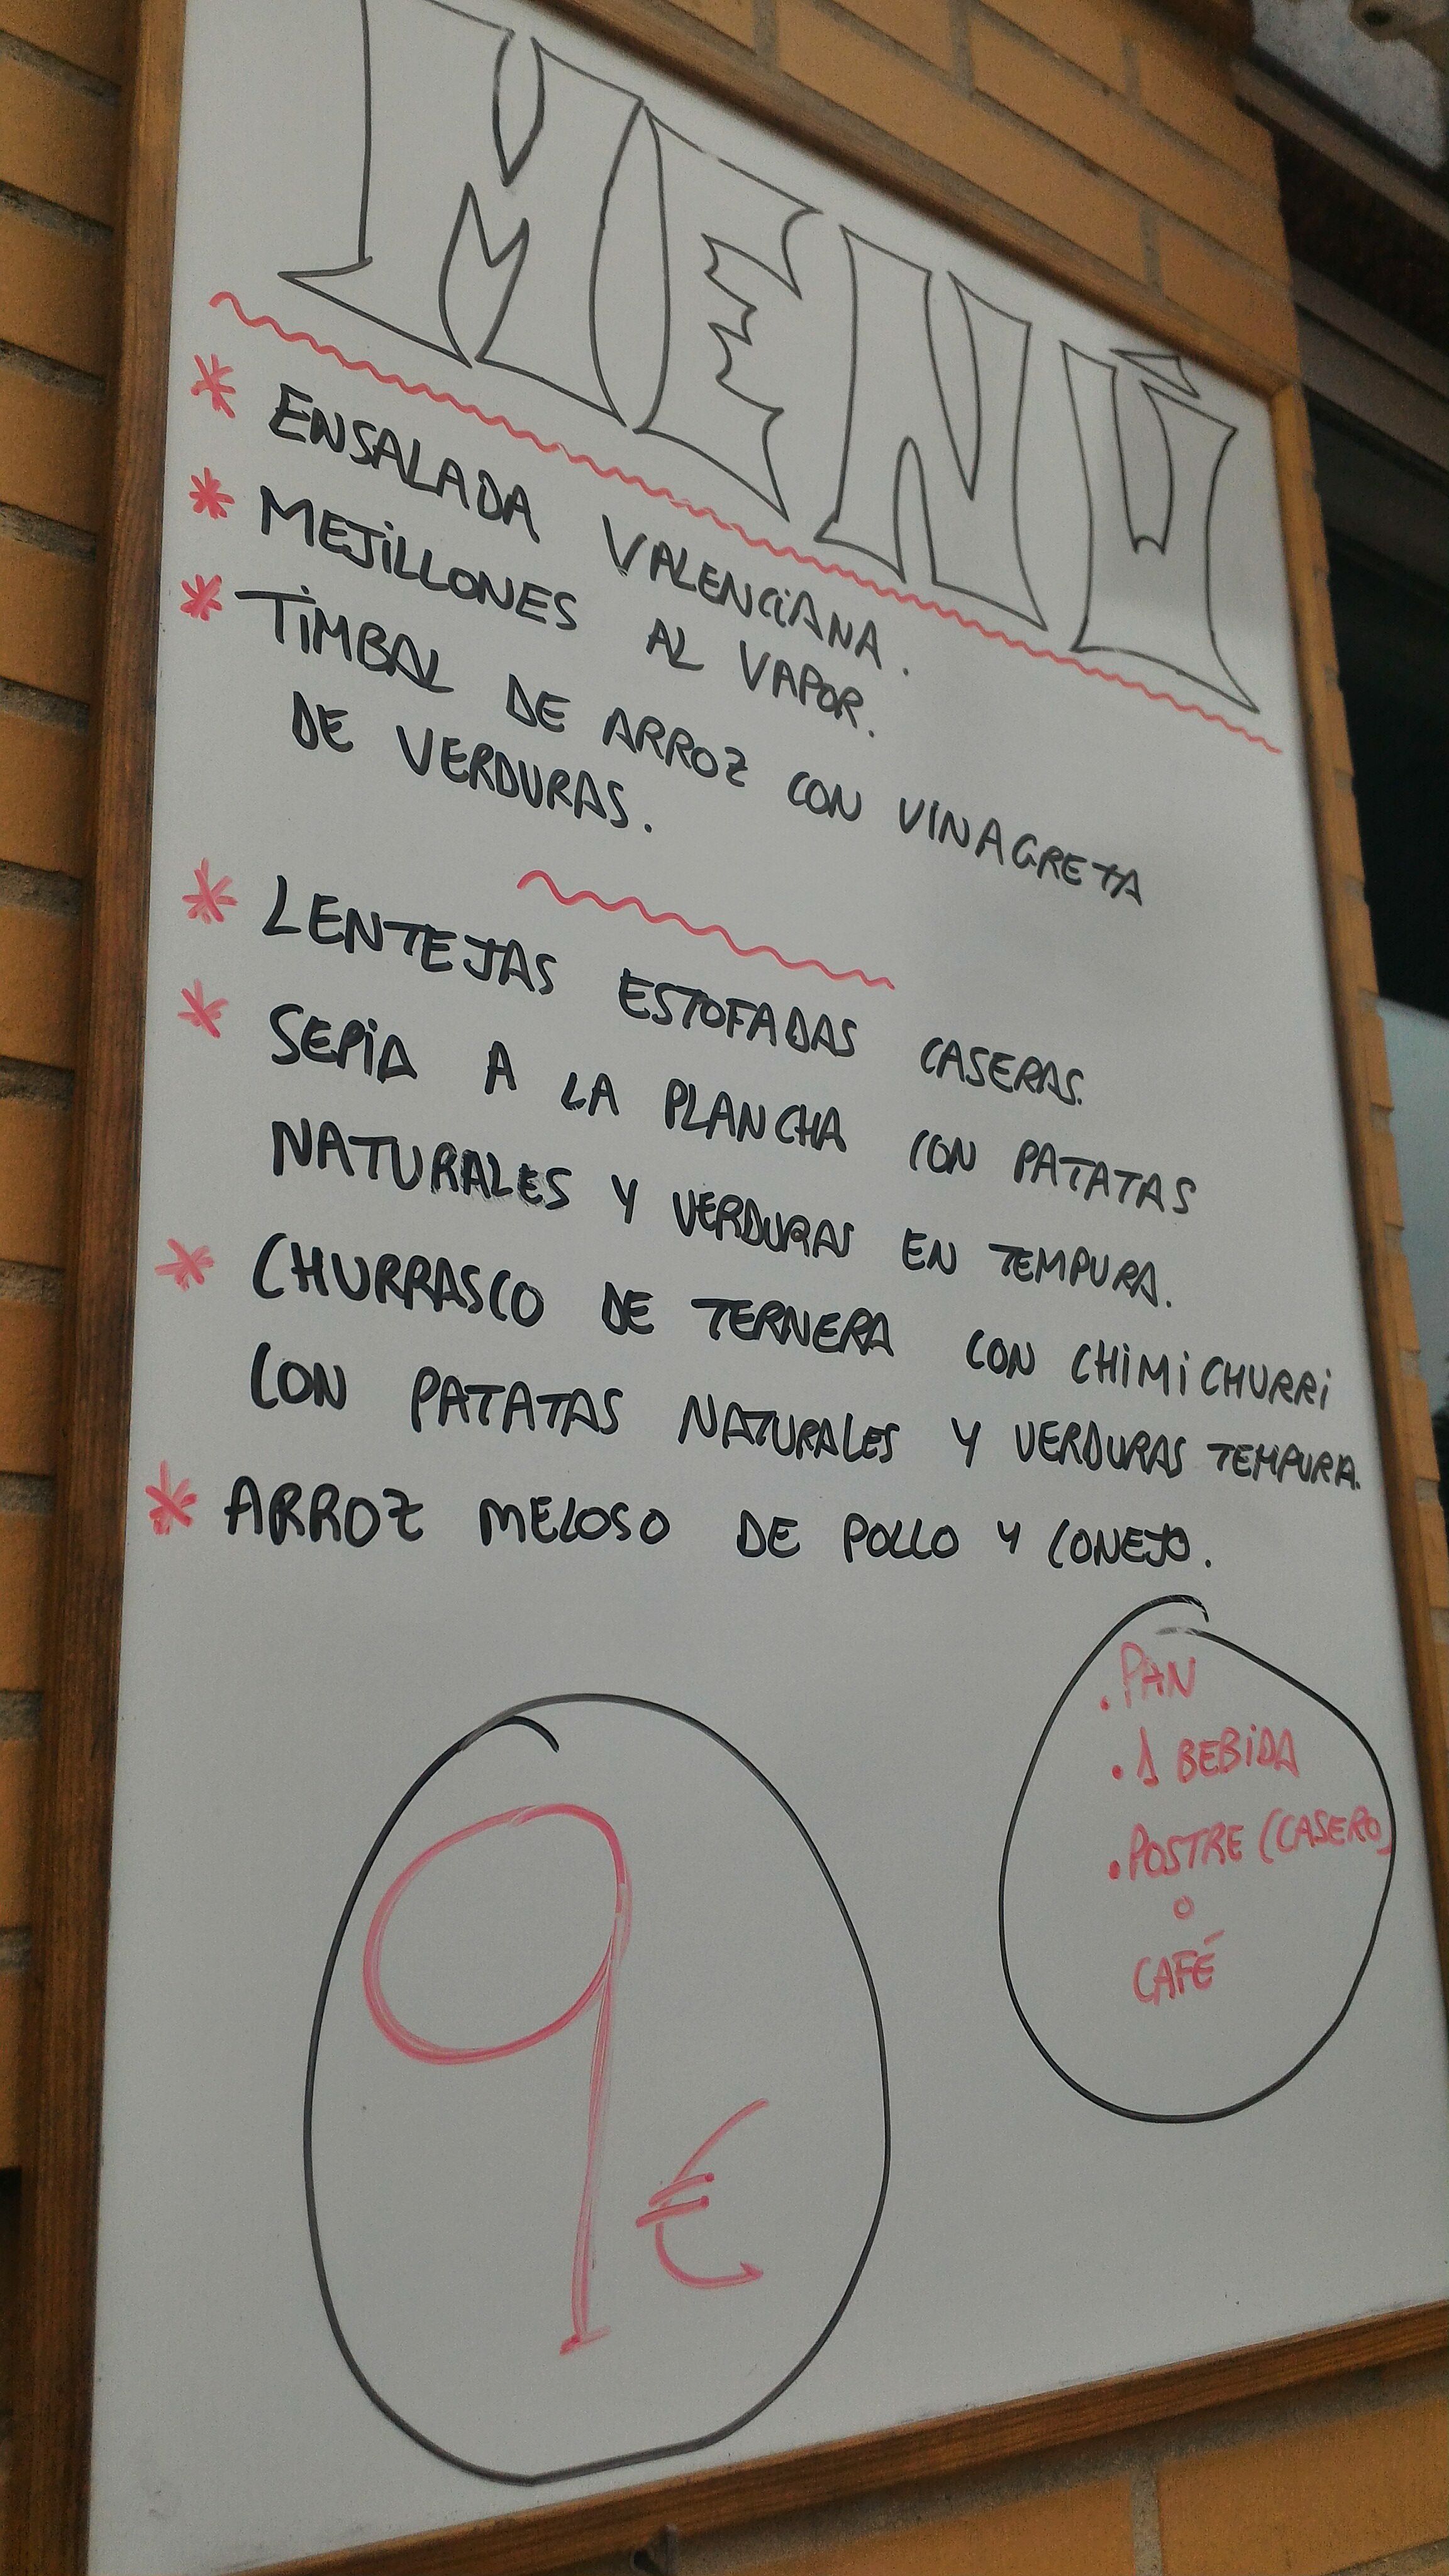 MENÚ
* ENSALADA VALENCiANA.
* MEJiLLONES AL VAPOR.
* TiMBAL DE ARROZ CON VINAGRETA
DE VERDURAS.
* LENTEJAS ESTOFADAS CASERAS.
* SEPiA A LA PLANCHA CON PATATAS
NATURALES Y VERDURAS EN TEMPURA.
* CHURRASCO DE TERNERA CON CHiMiCHURRi
CON PATATAS NATURALES Y VERDURAS TEMPURA.
* ARROZ MELOSO DE POLLO Y CONEJO.
. PAN
. 1 BEBiDA
. POSTRE (CASERO)
o
CAFÉ
9 €